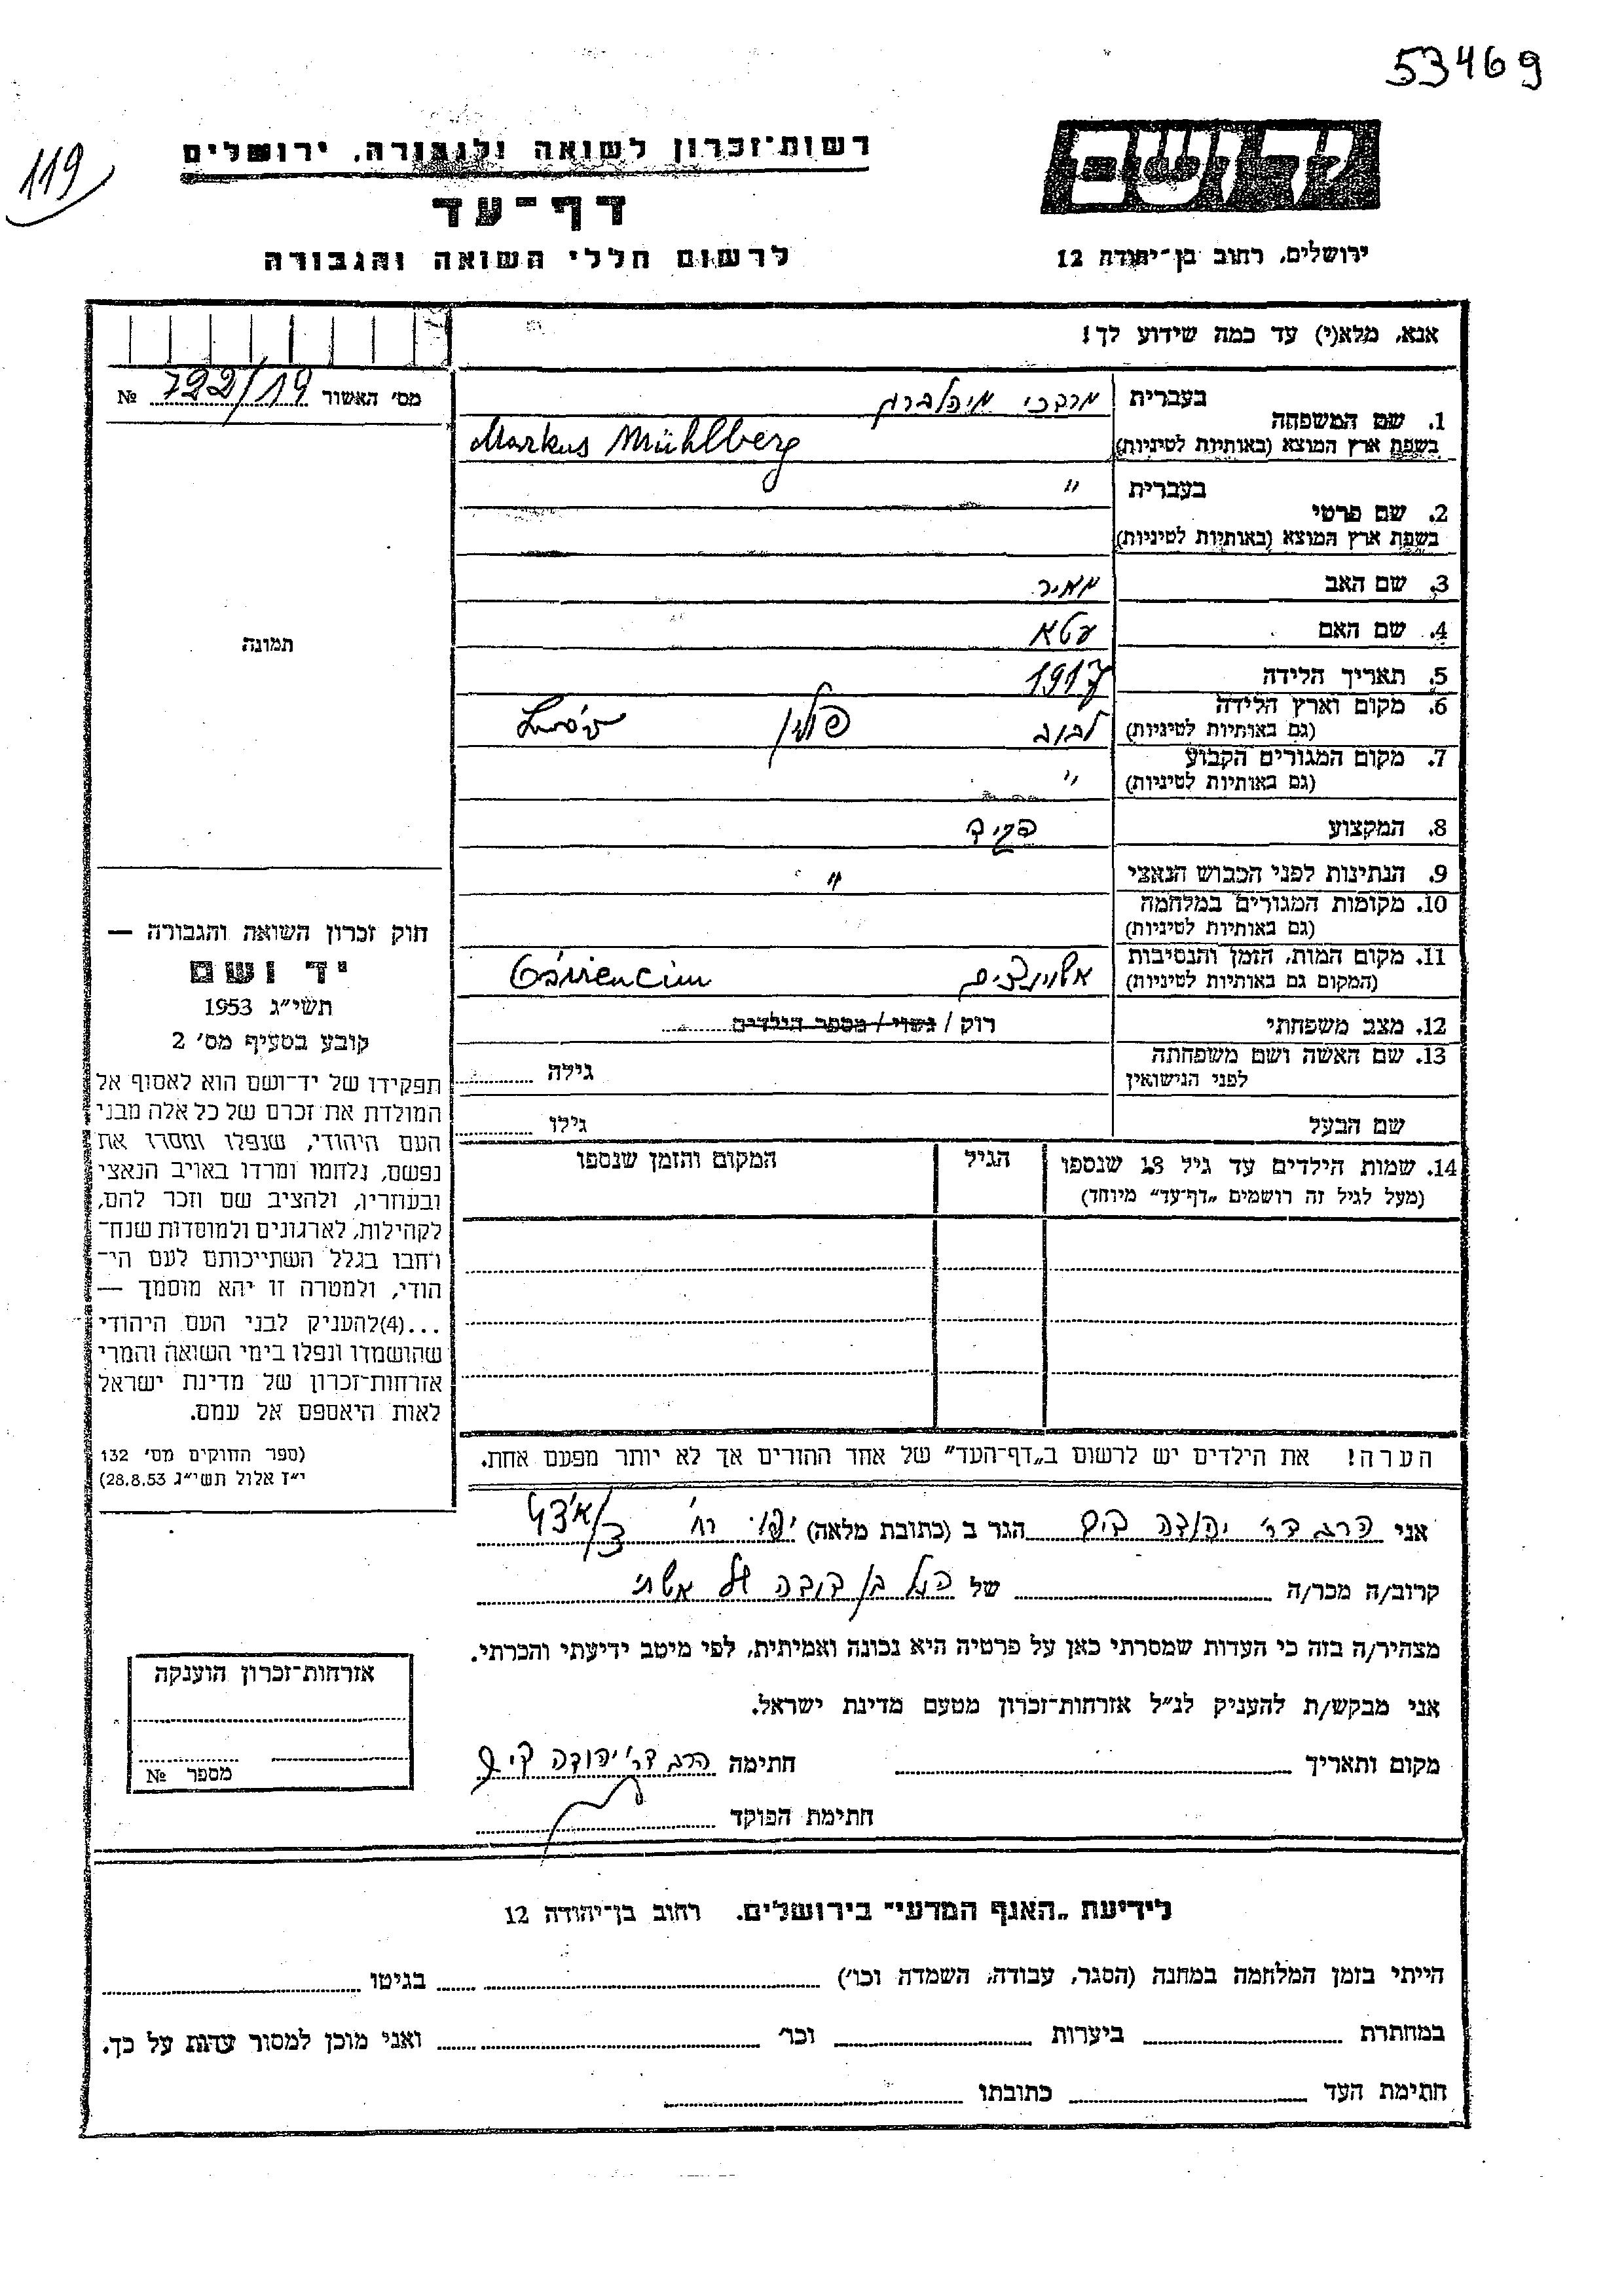 53469
119
רשות־זכרון לשואה ולגבורה, ירושלים
דף־עד
לרשום חללי השואה והגבורה
יד ושם
ירושלים, רחוב בן־יהודה 12
אנא, מלא(י) עד כמה שידוע לך!
מס' האשור 722/19 №
1. שם המשפחה
בעברית מרדכי מיהלברג
בשפת ארץ המוצא (באותיות לטיניות) Markus Mühlberg
2. שם פרטי
בעברית "
בשפת ארץ המוצא (באותיות לטיניות)
3. שם האב מאיר
4. שם האם עטא
5. תאריך הלידה 1917
6. מקום וארץ הלידה לבוב פולין
(גם באותיות לטיניות)
7. מקום המגורים הקבוע "
(גם באותיות לטיניות)
8. המקצוע פקיד
9. הנתינות לפני הכבוש הנאצי "
10. מקומות המגורים במלחמה
(גם באותיות לטיניות)
11. מקום המות, הזמן והנסיבות
(המקום גם באותיות לטיניות)
12. מצב משפחתי רוק / נשוי / מספר הילדים
13. שם האשה ושם משפחתה
לפני הנישואין
גילה
שם הבעל גילו
14. שמות הילדים עד גיל 18 שנספו
(מעל לגיל זה רושמים „דף־עד" מיוחד)
הגיל
המקום והזמן שנספו
הערה! את הילדים יש לרשום ב„דף־העד" של אחד ההורים אך לא יותר מפעם אחת.
תמונה
חוק זכרון השואה והגבורה —
יד ושם
תשי"ג 1953
קובע בסעיף מס' 2
תפקידו של יד־ושם הוא לאסוף אל
המולדת את זכרם של כל אלה מבני
העם היהודי, שנפלו ומסרו את
נפשם, נלחמו ומרדו באויב הנאצי
ובעוזריו, ולהציב שם וזכר להם,
לקהילות, לארגונים ולמוסדות שנח־
רחבו בגלל השתייכותם לעם הי־
הודי, ולמטרה זו יהא מוסמך —
...(4)להעניק לבני העם היהודי
שהושמדו ונפלו בימי השואה והמרי
אזרחות־זכרון של מדינת ישראל
לאות היאספם אל עמם.
(ספר החוקים מס' 132
י"ז אלול תשי"ג 28.8.53)
אני הרב דר' יהודה הגר ב (כתובת מלאה) יפו רח'
קרוב/ה מכר/ה של בן דודה של אשתי
מצהיר/ה בזה כי העדות שמסרתי כאן על פרטיה היא נכונה ואמיתית, לפי מיטב ידיעתי והכרתי.
אני מבקש/ת להעניק לנ"ל אזרחות־זכרון מטעם מדינת ישראל.
מקום ותאריך חתימה הרב דר' יהודה
חתימת הפוקד
אזרחות־זכרון הוענקה
מספר №
לידיעת „האגף המדעי" בירושלים. רחוב בן־יהודה 12
הייתי בזמן המלחמה במחנה (הסגר, עבודה, השמדה וכו') בגיטו
במחתרת ביערות וכו' ואני מוכן למסור עדות על כך.
חתימת העד כתובתו